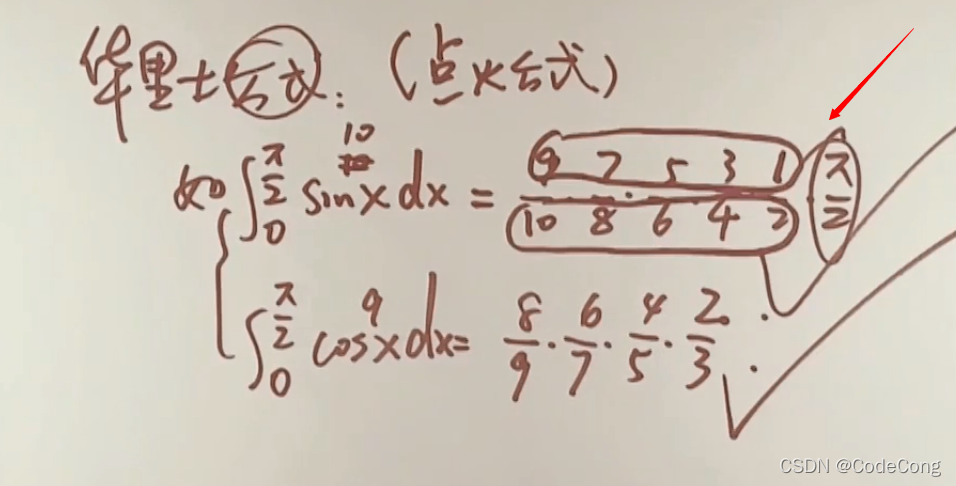 华里士公式：（点火公式）
如 ∫₀^(π/2) sin¹⁰x dx = 9/10 · 7/8 · 5/6 · 3/4 · 1/2 · π/2
∫₀^(π/2) cos⁹x dx = 8/9 · 6/7 · 4/5 · 2/3 ·
CSDN @CodeCong